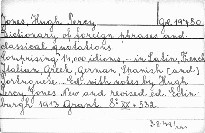 Jones, Hugh Percy
Dictionary of foreign phrases and
classical quotations
Comprising 14,000 idioms, ... in Latin, French
Italian, Greek, German, Spanish (and)
Portuguese. Ed. with notes by Hugh
Percy Jones. New and revised ed. Edin-
burgh, 1913 Grant 8° XX + 532.